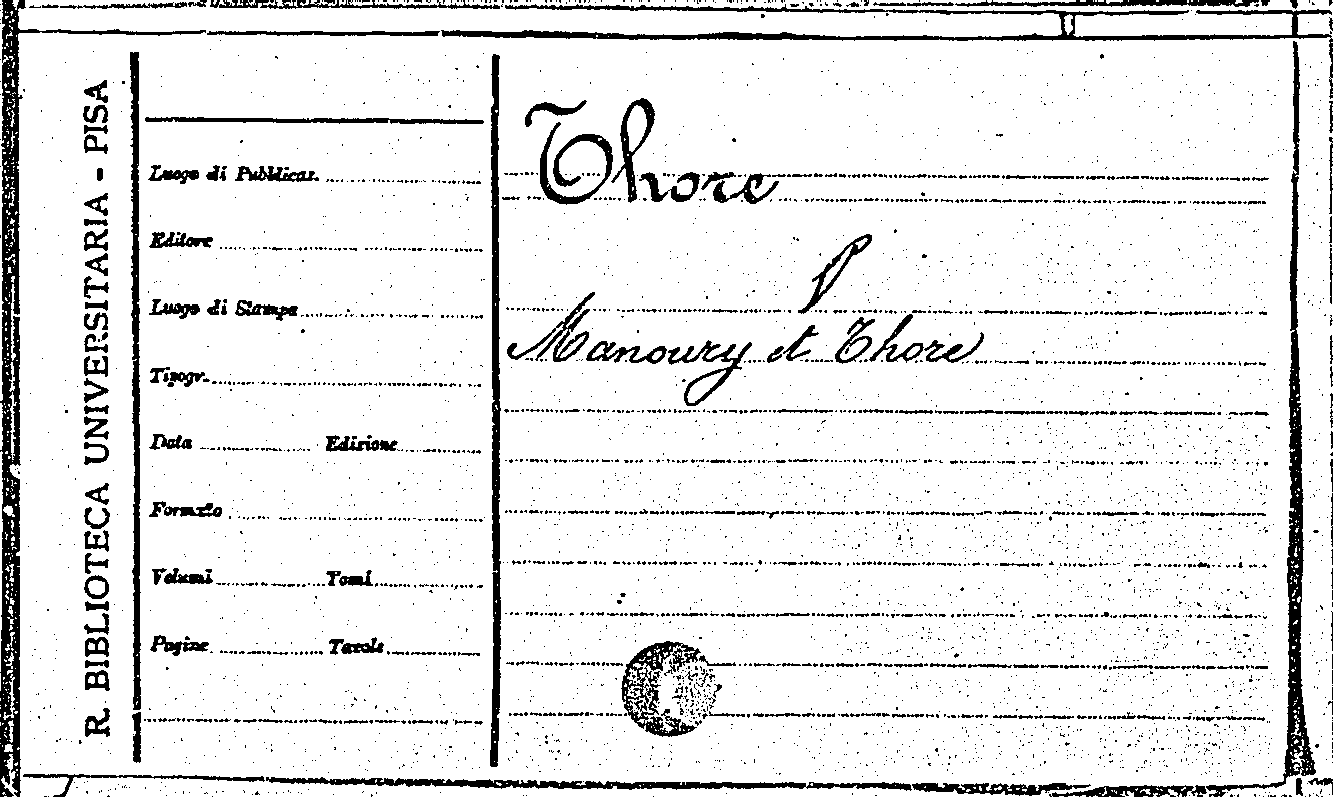 R. BIBLIOTECA UNIVERSITARIA - PISA
Luogo di Pubblicaz.
Editore
Luogo di Stampa
Tipogr.
Data Edizione
Formato
Volumi Tomi
Pagine Tavole
Thore
Manoury et Thore